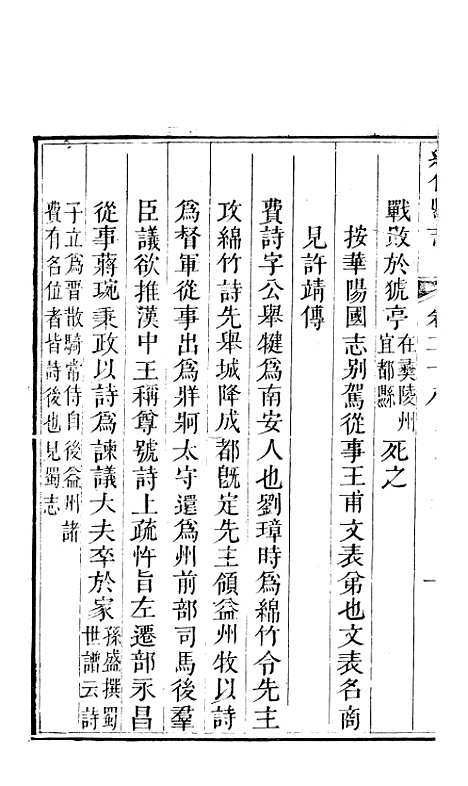 戰敗於猇亭在彝陵州宜都縣死之
按華陽國志別駕從事王甫文表弟也文表名商
見許靖傳
費詩字公舉犍為南安人也劉璋時為綿竹令先主
攻綿竹詩先舉城降成都既定先主領益州牧以詩
為督軍從事出為牂牁太守還為州前部司馬後羣
臣議欲推漢中王稱尊號詩上疏忤旨左遷部永昌
從事蔣琬秉政以詩為諫議大夫卒於家孫盛撰蜀世譜云詩
子立為晋散騎常侍自後益州諸
費有各位者皆詩後也見蜀志